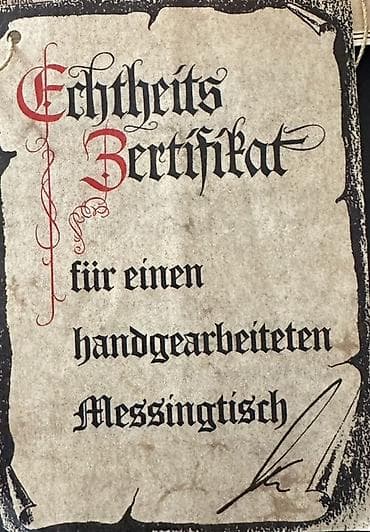 Echtheits
Zertifikat
für einen
handgearbeiteten
Messingtisch